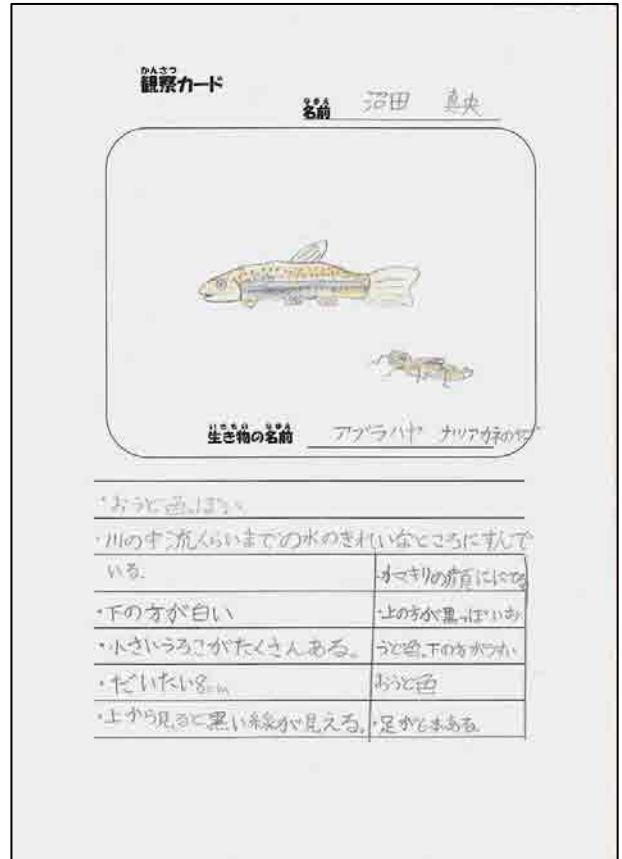 かんさつ
観察カード
なまえ
名前 沼田 真央
いきもの なまえ
生き物の名前 アブラハヤ ナツアカネのヤゴ
・おうど色っぽい
・川の中流くらいまでの水のきれいなところにすんで
いる。
・下の方が白い
・小さいうろこがたくさんある。
・だいたい8cm
・上から見ると黒い線が見える。
・カマキリの顔ににてる
・上の方が黒っぽいお
うど色、下の方がうすい
おうど色
・足が6本ある。